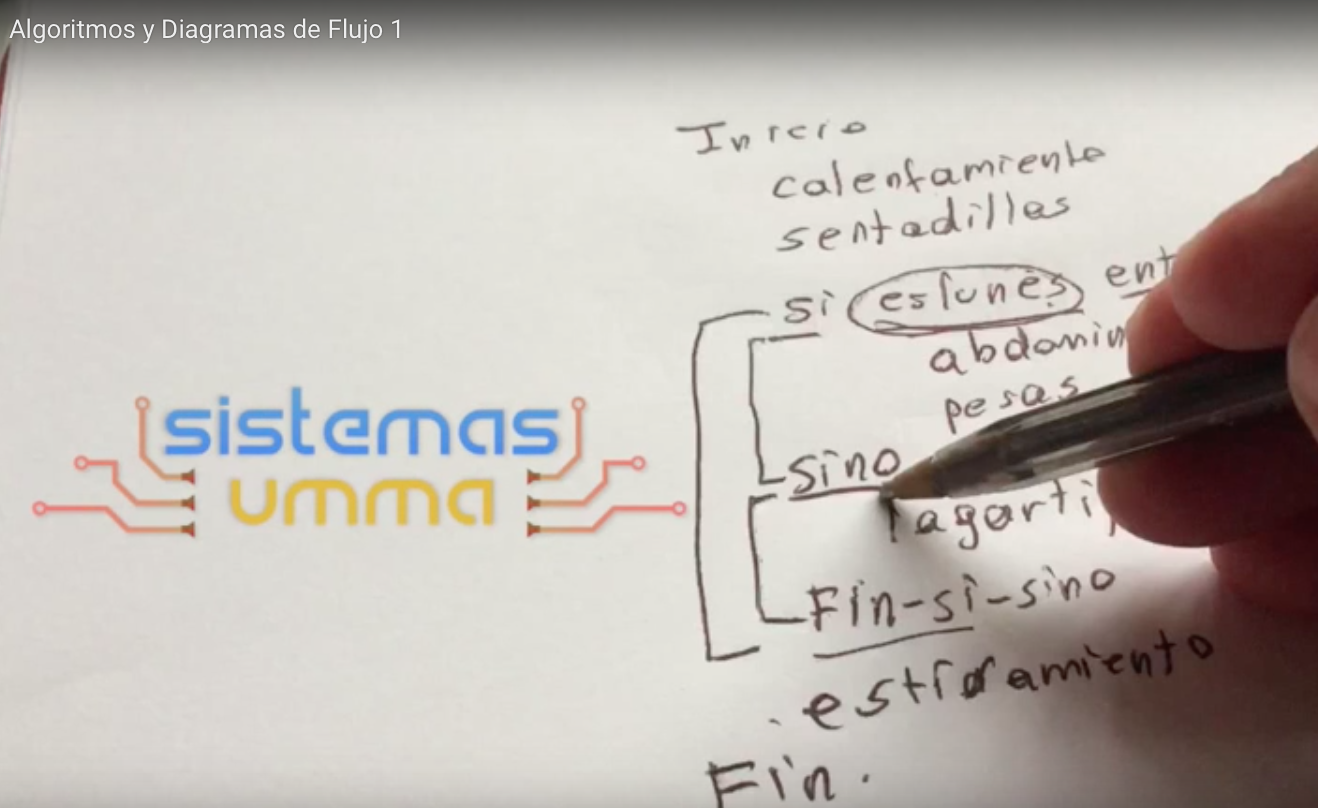 Algoritmos y Diagramas de Flujo 1
Inicio
calentamiento
sentadillas
si es lunes ent
abdomin
pesas
sino
lagarti
Fin-si-sino
estiramiento
Fin.
sistemas
umma